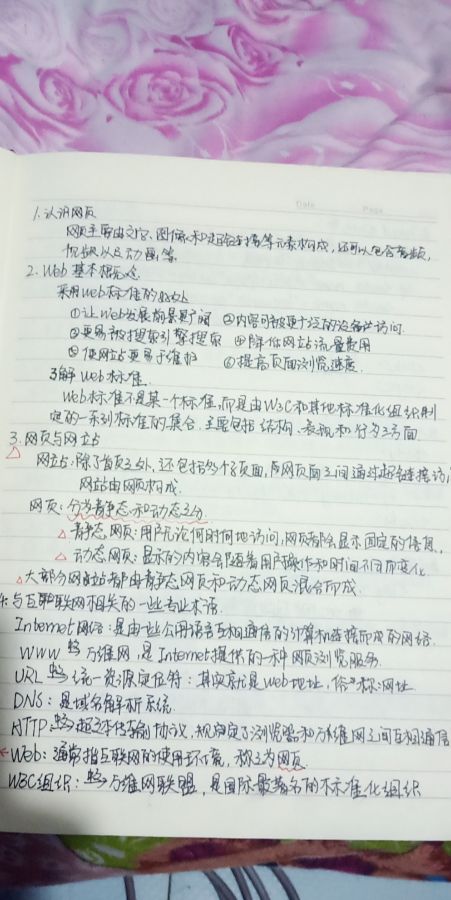 Date Page
1.认识网页
网页主要由文字、图像和超链接等元素构成,还可以包含音频,
视频以及动画等
2.Web基本概念
采用web标准的好处
①让Web发展前景更广阔 ②内容可被更广泛的设备访问
③更易被搜索引擎搜索 ④降低网站流量费用
⑤使网站更易于维护 ⑥提高页面浏览速度
了解Web标准.
Web标准不是某一个标准,而是由W3C和其他标准化组织制
定的一系列标准的集合,主要包括结构、表现和行为三方面
3.网页与网站
网站:除了首页之外,还包括多个子页面,
网站由网页构成.
网页:分为静态和动态之分.
静态网页:用户无论何时何地访问,网页都会显示固定的信息.
动态网页:显示的内容会随着用户操作和时间不同而变化
大部分网站都由静态网页和动态网页混合而成.
4.与互联网相关的一些专业术语
Internet网络:是由一些公用语言互相通信的计算机连接而成的网络.
WWW 万维网,是Internet提供的一种网页浏览服务.
URL 统一资源定位符:其实就是Web地址,俗称:网址
DNS:是域名解析系统.
HTTP 超文本传输协议,规定了浏览器和万维网之间互相通信
Web:通常指互联网的使用环境,称之为网页.
W3C组织: 万维网联盟,是国际最著名的标准化组织